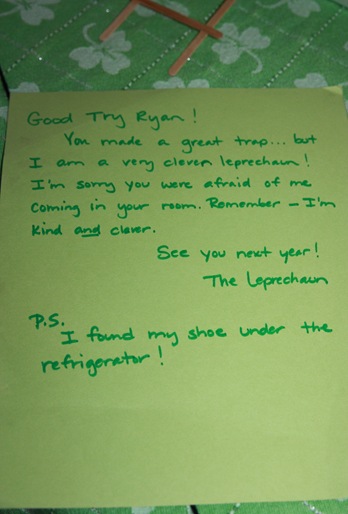 Good Try Ryan!
You made a great trap... but
I am a very clever leprechaun!
I'm sorry you were afraid of me
coming in your room. Remember - I'm
kind and clever.
See you next year!
The Leprechaun
P.S.
I found my shoe under the
refrigerator!